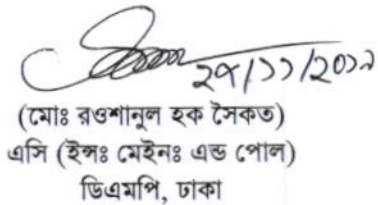 ২৫/১১/২০১৯
(মোঃ রওশানুল হক সৈকত)
এসি (ইন্সঃ মেইনঃ এন্ড পোল)
ডিএমপি, ঢাকা